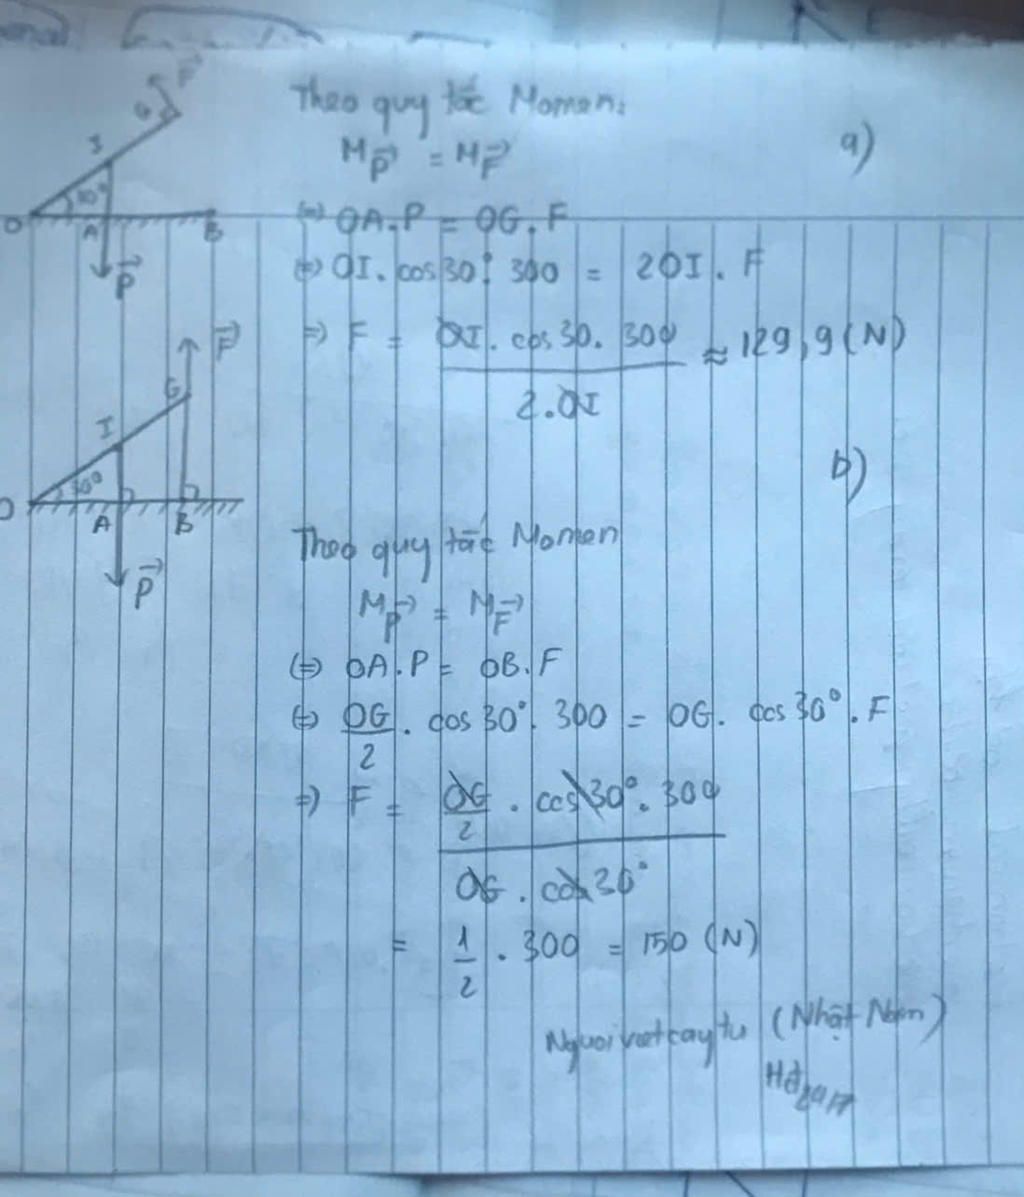 Theo quy tắc Momen:
a)
M_P⃗ = M_F⃗
F⃗
G
I
30°
O A B
P⃗
(=) OA.P = OG.F
(=) OI. cos30°. 300 = 2OI. F
=) F = OI. cos 30. 300 / 2.OI ≈ 129,9 (N)
F⃗
G
I
30°
O A B
P⃗
b)
Theo quy tắc Momen
M_P⃗ = M_F⃗
(=) OA.P = OB.F
(=) OG/2 . cos 30°. 300 = OG. cos 30°. F
=) F = OG/2 . cos 30°. 300 / OG . cos 30°
= 1/2 . 300 = 150 (N)
(Nhật Nam)